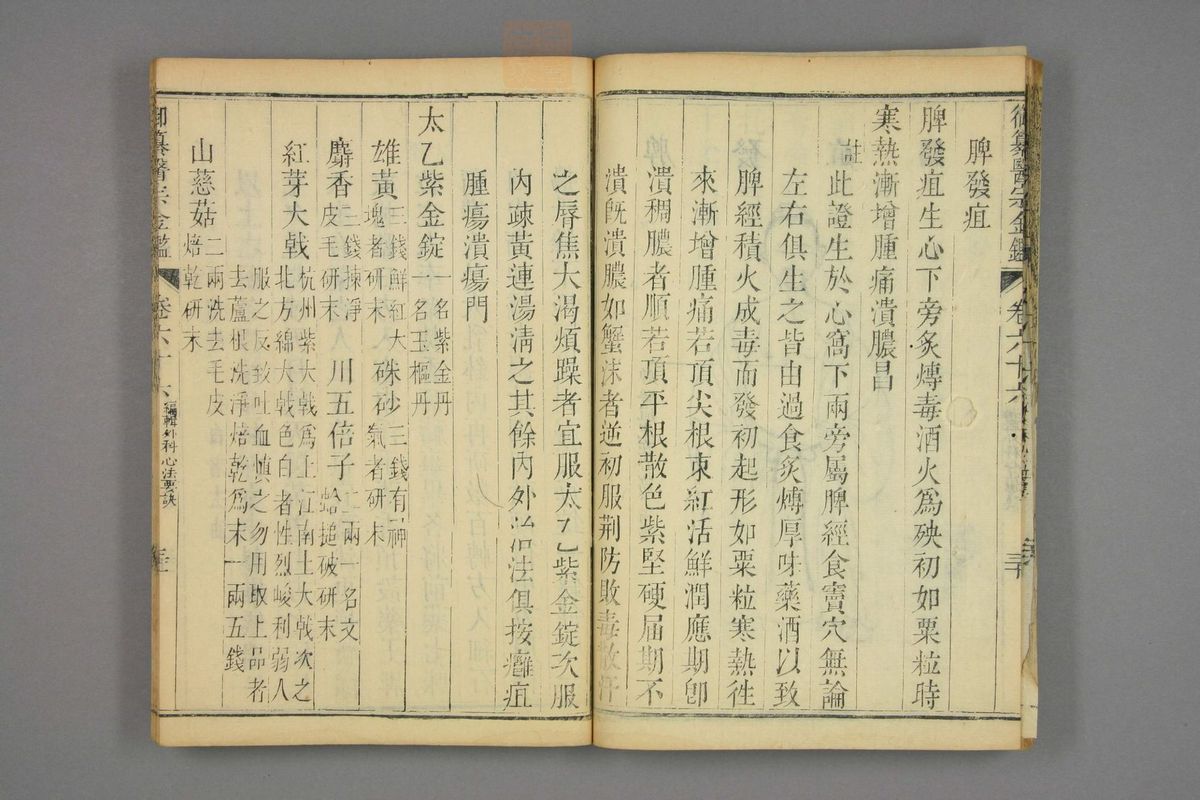 御纂醫宗金鑑 卷六十六
脾發疽
脾發疽生心下旁炙煿毒酒火為殃初如粟粒時
寒熱漸增腫痛潰膿昌
註此證生於心窩下兩旁屬脾經食竇穴無論
左右俱生之皆由過食炙煿厚味藥酒以致
脾經積火成毒而發初起形如粟粒寒熱往
來漸增腫痛若頂尖根束紅活鮮潤應期卽
潰稠膿者順若頂平根散色紫堅硬届期不
潰旣潰膿如蟹沫者逆初服荆防敗毒散汗
之唇焦大渴煩躁者宜服太乙紫金錠次服
內疎黃連湯淸之其餘內外治法俱按癰疽
腫瘍潰瘍門
太乙紫金錠一名紫金丹
一名玉樞丹
雄黃三錢鮮紅大
塊者研末
硃砂三錢有神
氣者研末
麝香三錢揀淨
皮毛研末
川五倍子一名文
蛤搥破研末
二兩
紅芽大戟杭州紫大戟為上江南土大戟次之
北方綿大戟色白者性烈峻利弱人
服之反致吐血慎之勿用取上品者
去蘆根洗淨焙乾為末一兩五錢
山慈菇二兩洗去毛皮
焙乾研末
御纂醫宗金鑑 卷六十六 編輯外科心法要訣